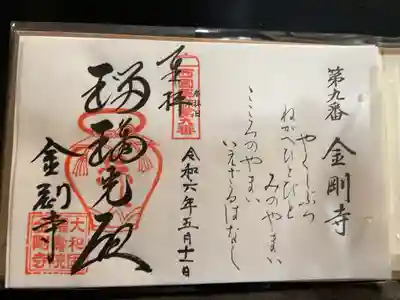 第九番 金剛寺
やくしぶつ
ねがへひとびと
みのやまい
こころのやまい
いえざるはなし
令和六年五月十一日
奉拝
瑠璃光殿
金剛寺